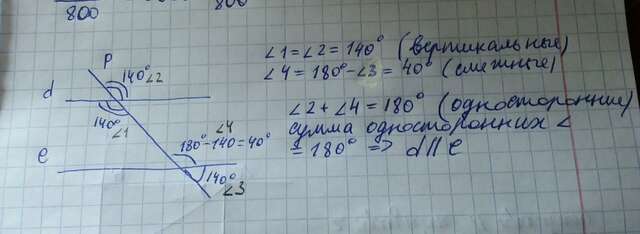 800
800
P
140° ∠2
d
140°
∠1
∠4
180°-140=40°
e
140°
∠3
∠1=∠2=140° (вертикальные)
∠4=180°-∠3=40° (смежные)
∠2+∠4=180° (односторонние)
сумма односторонних ∠
=180° => d||e